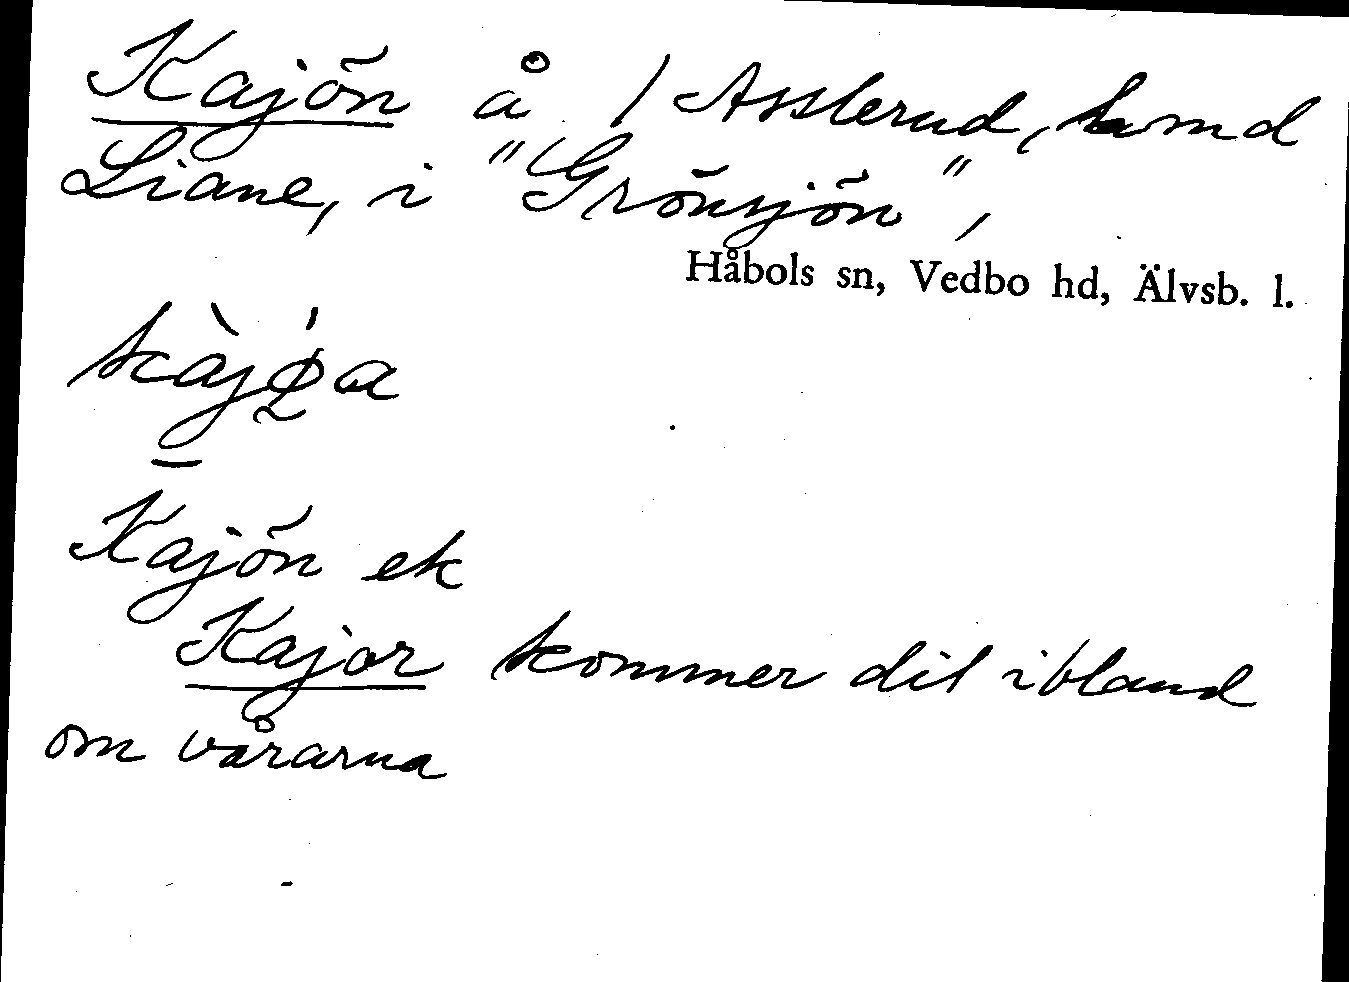 Kajön å / Asslerud, samd
Liane, i "Grönsjön",
Håbols sn, Vedbo hd, Älvsb. l.
Kajön ek
Kajor kommer dit ibland
om vårarna